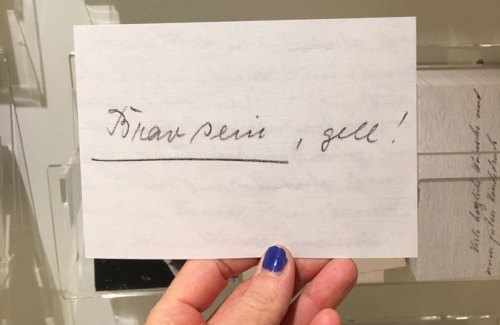 Brav sein, gell!